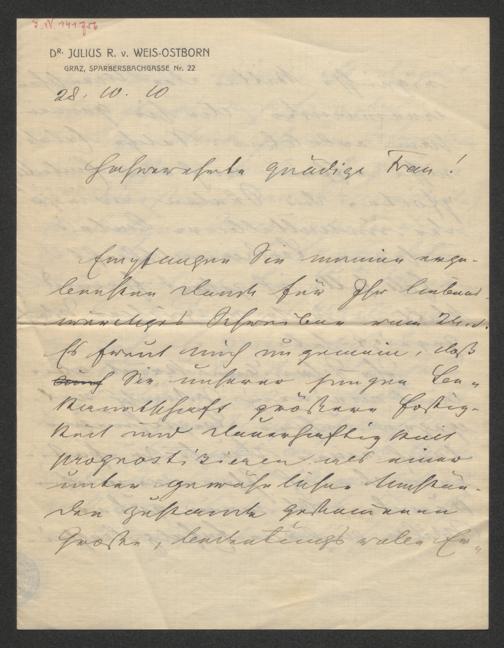 I. N. 141.756
DR. JULIUS R. v. WEIS-OSTBORN
GRAZ, SPARBERSBACHGASSE Nr. 22
28. 10. 10
Hochverehrte gnädige Frau!
Empfangen Sie meinen erge-
bensten Dank für Ihr liebens-
würdiges Schreiben vom
Es freut mich ungemein, daß
Sie unserer jungen Be-
kanntschaft größere Festig-
keit und Dauerhaftigkeit
prognostizieren als einer
unter gewöhnlichen Umstän-
den zustande gekommenen